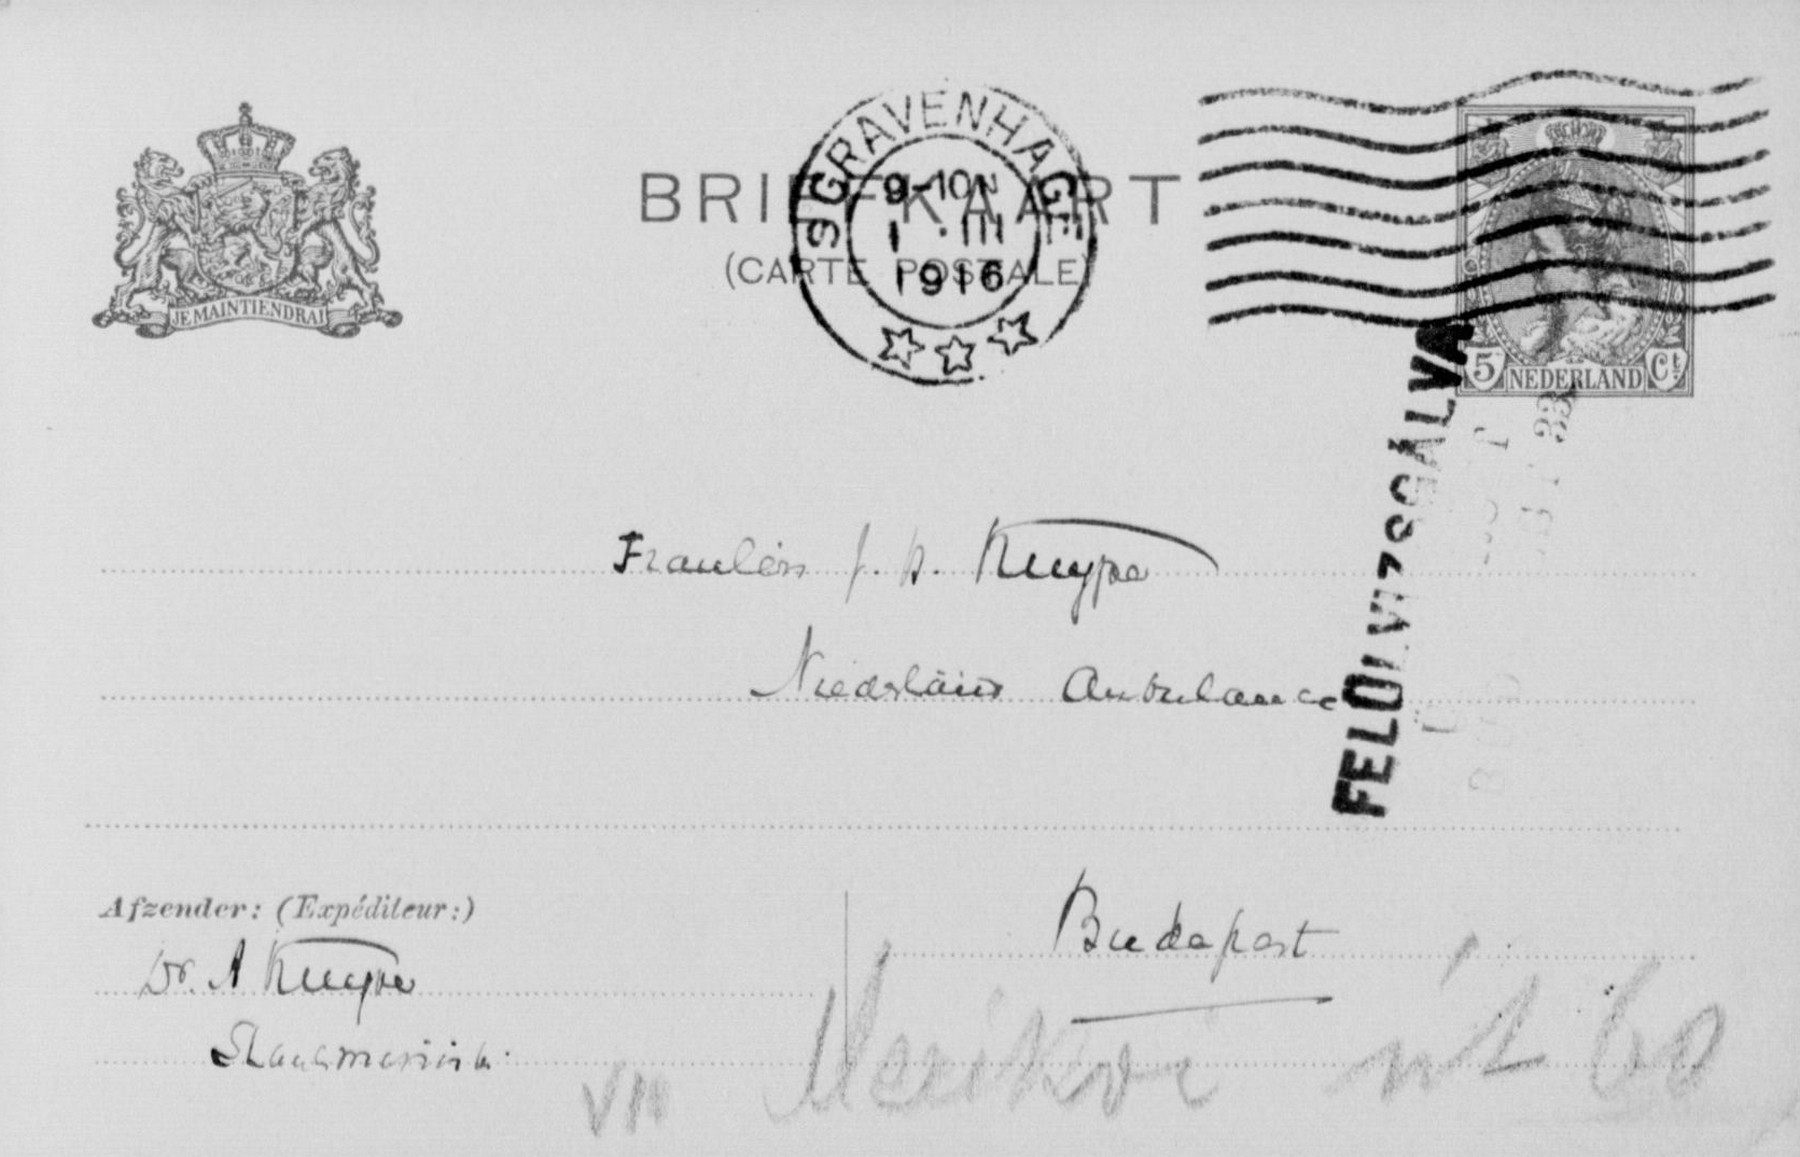 JE MAINTIENDRAI
BRIEFKAART
(CARTE POSTALE)
'SGRAVENHAGE
9-10N
1 .III
1916
5 Ct.
NEDERLAND
FELÜLVIZSGÁLVA
Fraulein J. H. Kuyper
Niederländ Ambulance
Budapest
Afzender: (Expéditeur:)
Dr. A Kuyper
VII
út 60